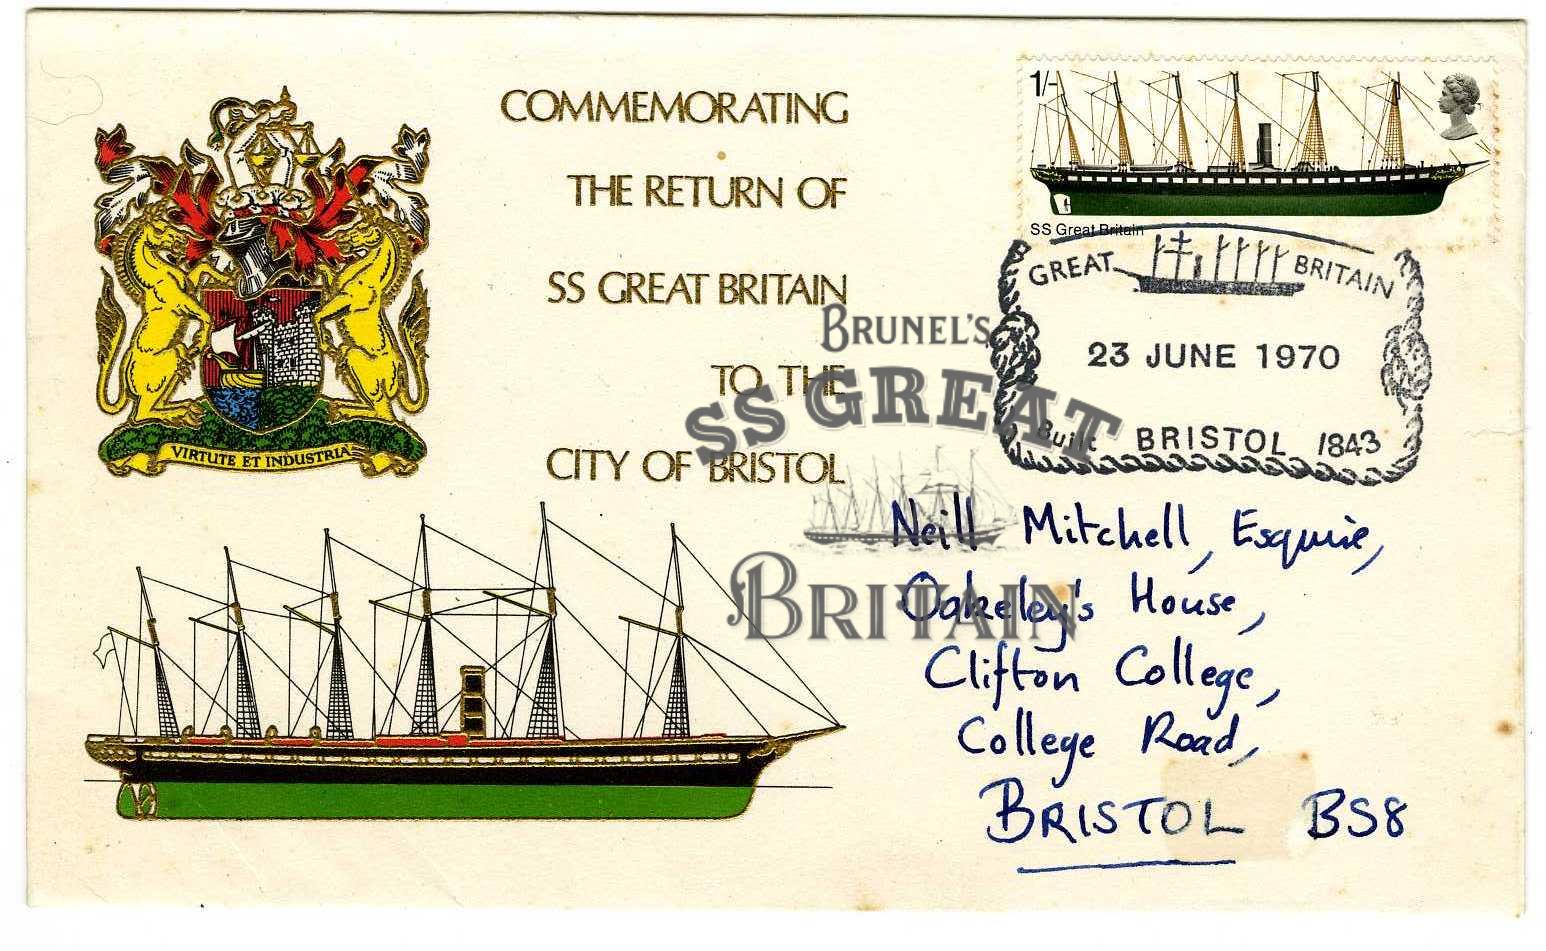 COMMEMORATING
THE RETURN OF
SS GREAT BRITAIN
TO THE
CITY OF BRISTOL
VIRTUTE ET INDUSTRIA
1/-
SS Great Britain
GREAT BRITAIN
23 JUNE 1970
Built BRISTOL 1843
BRUNEL'S
SS GREAT
BRITAIN
Neill Mitchell, Esquire,
Oakeley's House,
Clifton College,
College Road,
BRISTOL BS8